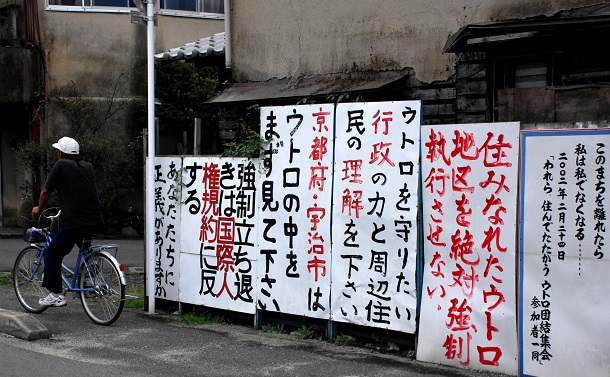 このまちを離れたら
私は私でなくなる……
二〇〇二年二月二十四日
「われら 住んでたたかう ウトロ団結集会」
参加者一同
住みなれたウトロ
地区を絶対強制
執行させない。
ウトロを守りたい
行政の力と周辺住
民の理解を下さい
京都府・宇治市は
ウトロの中を
まず見て下さい
強制立ち退
きは国際人
権規約に反
する
あなたたちに
正義がありますか